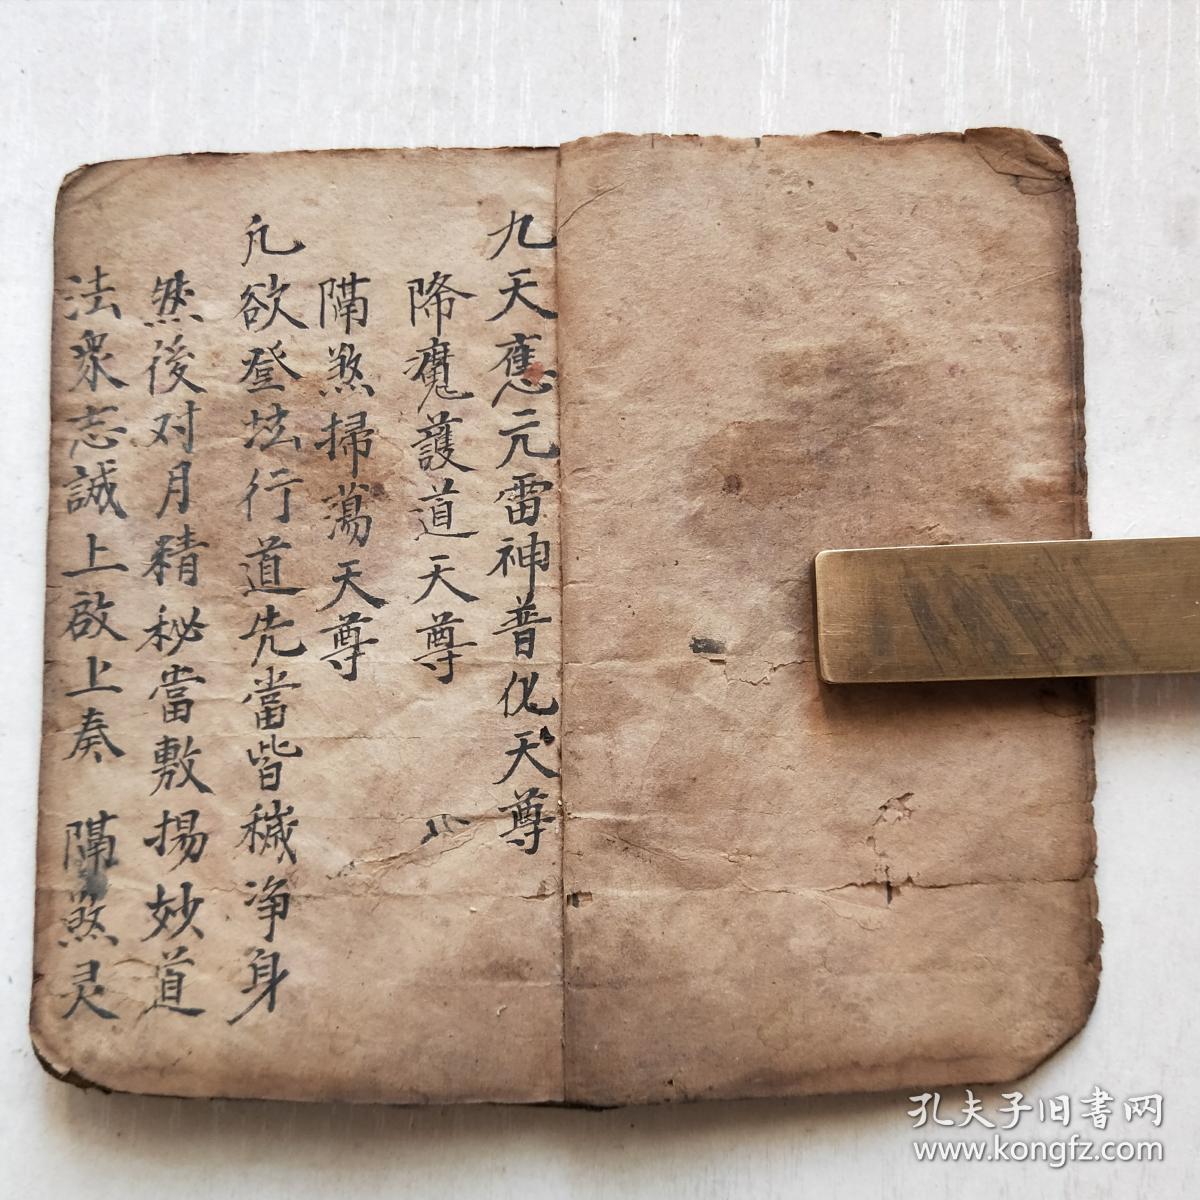 九天應元雷神普化天尊
降魔護道天尊
隔煞掃蕩天尊
凡欲登坛行道先當皆穢净身
然後对月精秘當敷揚妙道
法衆志誠上啟上奏 隔煞灵
孔夫子旧書网
www.kongfz.com